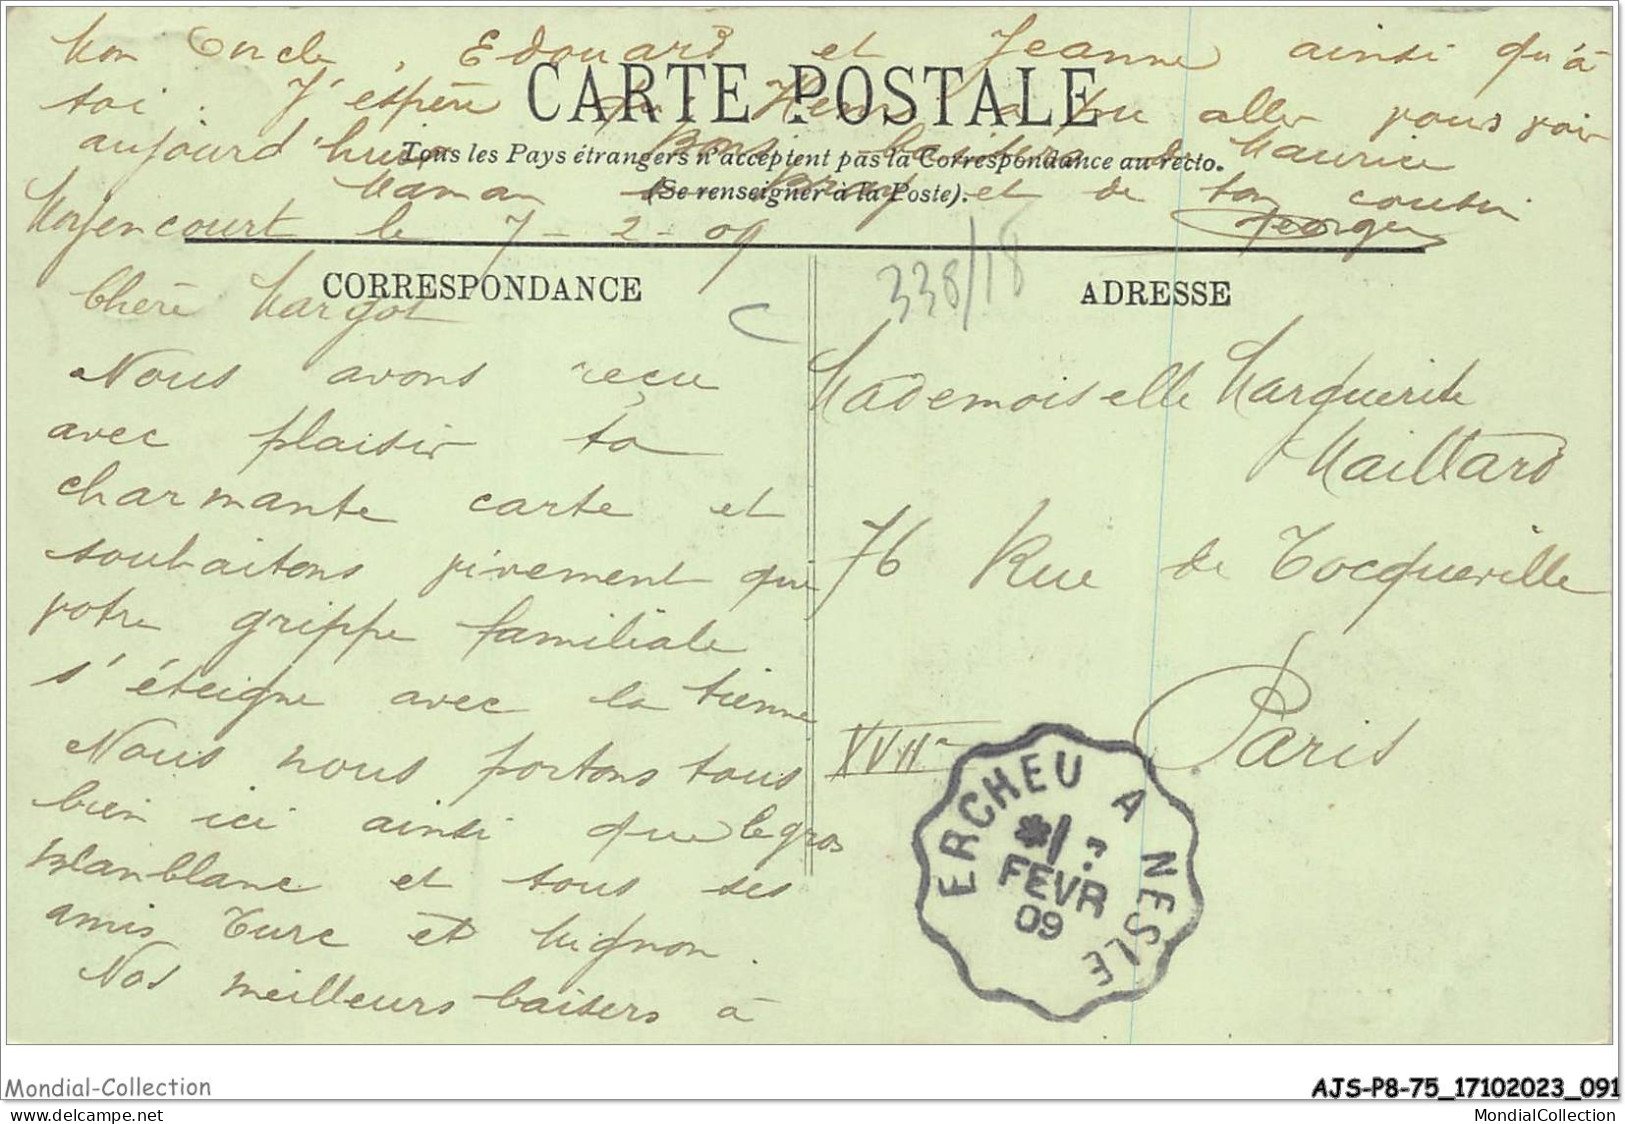 mon Oncle, Edouard et Jeanne ainsi qu'à
toi. J'espère que Henri a pu aller vous voir
aujourd'hui. Bons baisers de Maurice
Maman et de ton cousin
Georges
CARTE POSTALE
Tous les Pays étrangers n'acceptent pas la Correspondance au recto.
(Se renseigner à la Poste).
Moyencourt le 7-2-09
CORRESPONDANCE
Chère Margot
Nous avons reçu
avec plaisir ta
charmante carte et
souhaitons vivement que
votre grippe familiale
s'éteigne avec la tienne
Nous nous portons tous
bien ici ainsi que le gros
et tous ses
amis Turc et Mignon.
Nos meilleurs baisers à
338/18
ADRESSE
Mademoiselle Marguerite
Maillard
76 Rue de Tocqueville
Paris
XVIIe
ERCHEU A NESLE
FEVR
09
Mondial-Collection
AJS-P8-75_17102023_091
MondialCollection